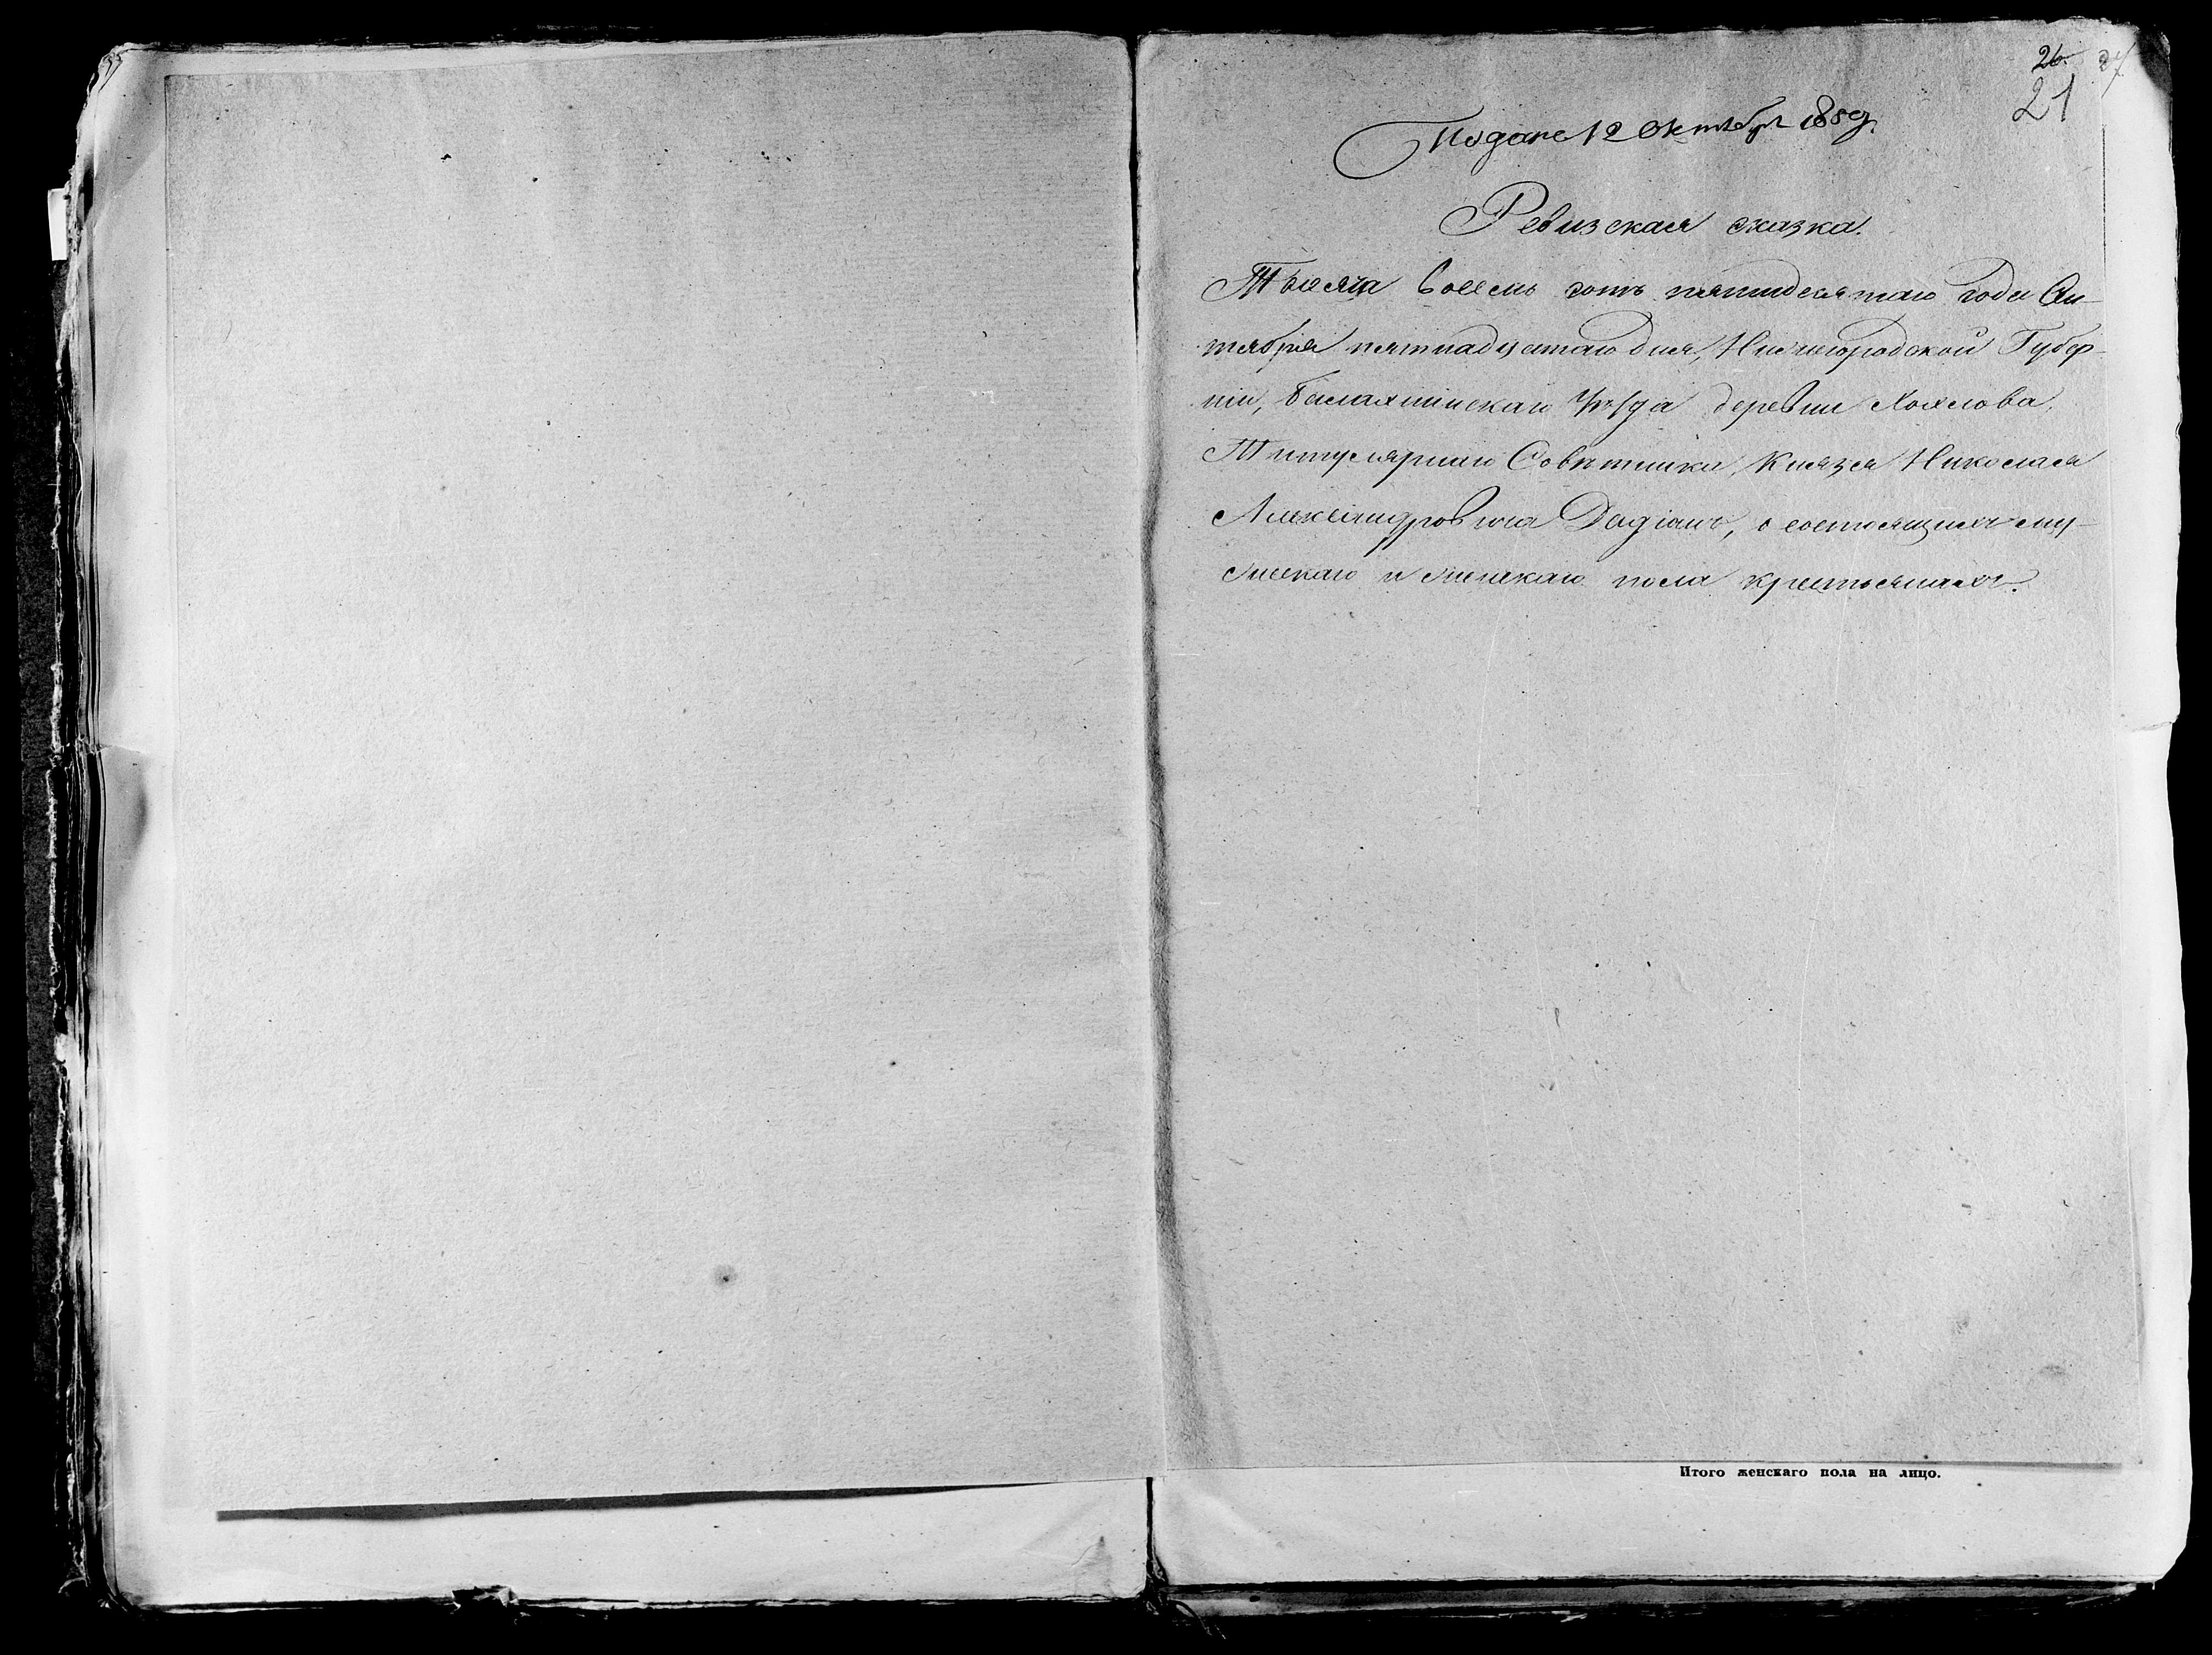 26. 27
21
Подана 12 Октября 1850
Ревизская сказка.
Тысяча восемь сотъ пятидесятаго года Ок-
тября пятнадцатаго дня, Нижегородской Губер-
ніи, Балахнинскаго Уѣзда деревни Хохлова,
Титулярнаго Совѣтника, Князя Николая
Александровича Дадіанъ, о состоящихъ му-
жескаго и женскаго пола крестьянахъ.
Итого женскаго пола на лицо.